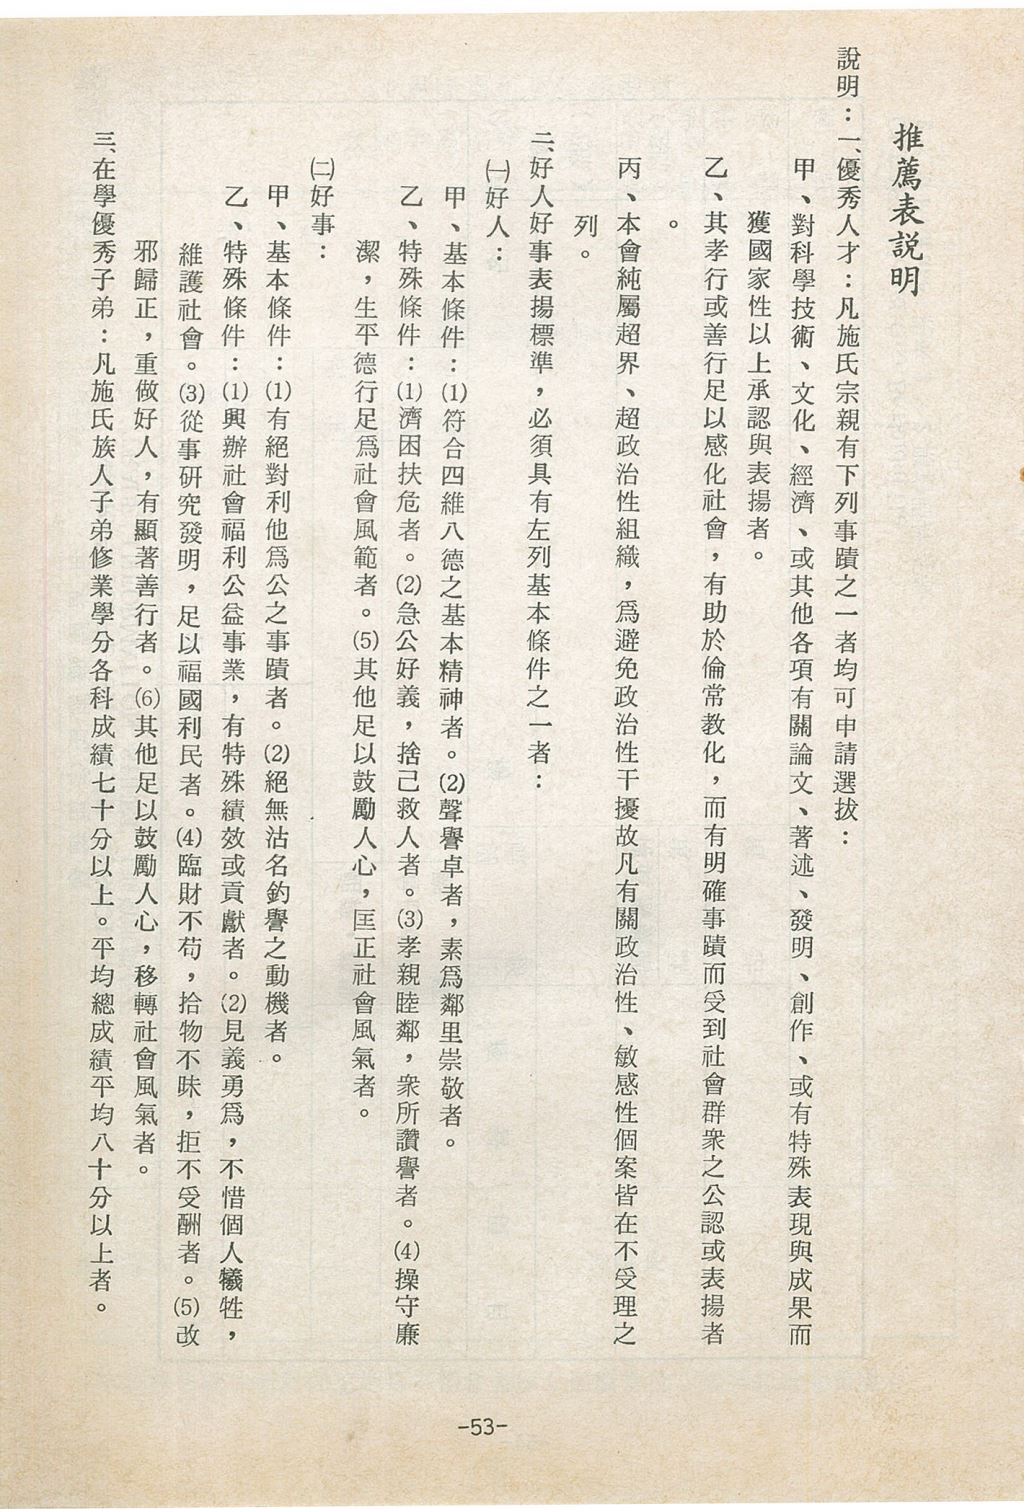 推薦表説明
說明：一、優秀人才：凡施氏宗親有下列事蹟之一者均可申請選拔：
甲、對科學技術、文化、經濟、或其他各項有關論文、著述、發明、創作、或有特殊表現與成果而
獲國家性以上承認與表揚者。
乙、其孝行或善行足以感化社會，有助於倫常教化，而有明確事蹟而受到社會群衆之公認或表揚者
。
丙、本會純屬超界、超政治性組織，爲避免政治性干擾故凡有關政治性、敏感性個案皆在不受理之
列。
二、好人好事表揚標準，必須具有左列基本條件之一者：
㈠好人：
甲、基本條件：⑴符合四維八德之基本精神者。⑵聲譽卓者，素爲鄰里崇敬者。
乙、特殊條件：⑴濟困扶危者。⑵急公好義，捨己救人者。⑶孝親睦鄰，衆所讚譽者。⑷操守廉
潔，生平德行足爲社會風範者。⑸其他足以鼓勵人心，匡正社會風氣者。
㈡好事：
甲、基本條件：⑴有絕對利他爲公之事蹟者。⑵絕無沽名釣譽之動機者。
乙、特殊條件：⑴興辦社會福利公益事業，有特殊績效或貢獻者。⑵見義勇爲，不惜個人犧牲，
維護社會。⑶從事研究發明，足以福國利民者。⑷臨財不苟，拾物不昧，拒不受酬者。⑸改
邪歸正，重做好人，有顯著善行者。⑹其他足以鼓勵人心，移轉社會風氣者。
三、在學優秀子弟：凡施氏族人子弟修業學分各科成績七十分以上。平均總成績平均八十分以上者。
-53-